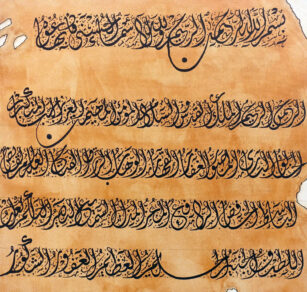 بسم الله الرحمن الرحيم ولله الأسماء الحسنى فادعوه بها
الرحمن الرحيم الملك القدوس السلام المؤمن المهيمن العزيز الجبار المتكبر
الخالق البارئ المصور الغفار القهار الوهاب الرزاق الفتاح العليم القابض
الباسط الخافض الرافع المعز المذل السميع البصير الحكم العدل
اللطيف الخبير الحليم العظيم الغفور الشكور